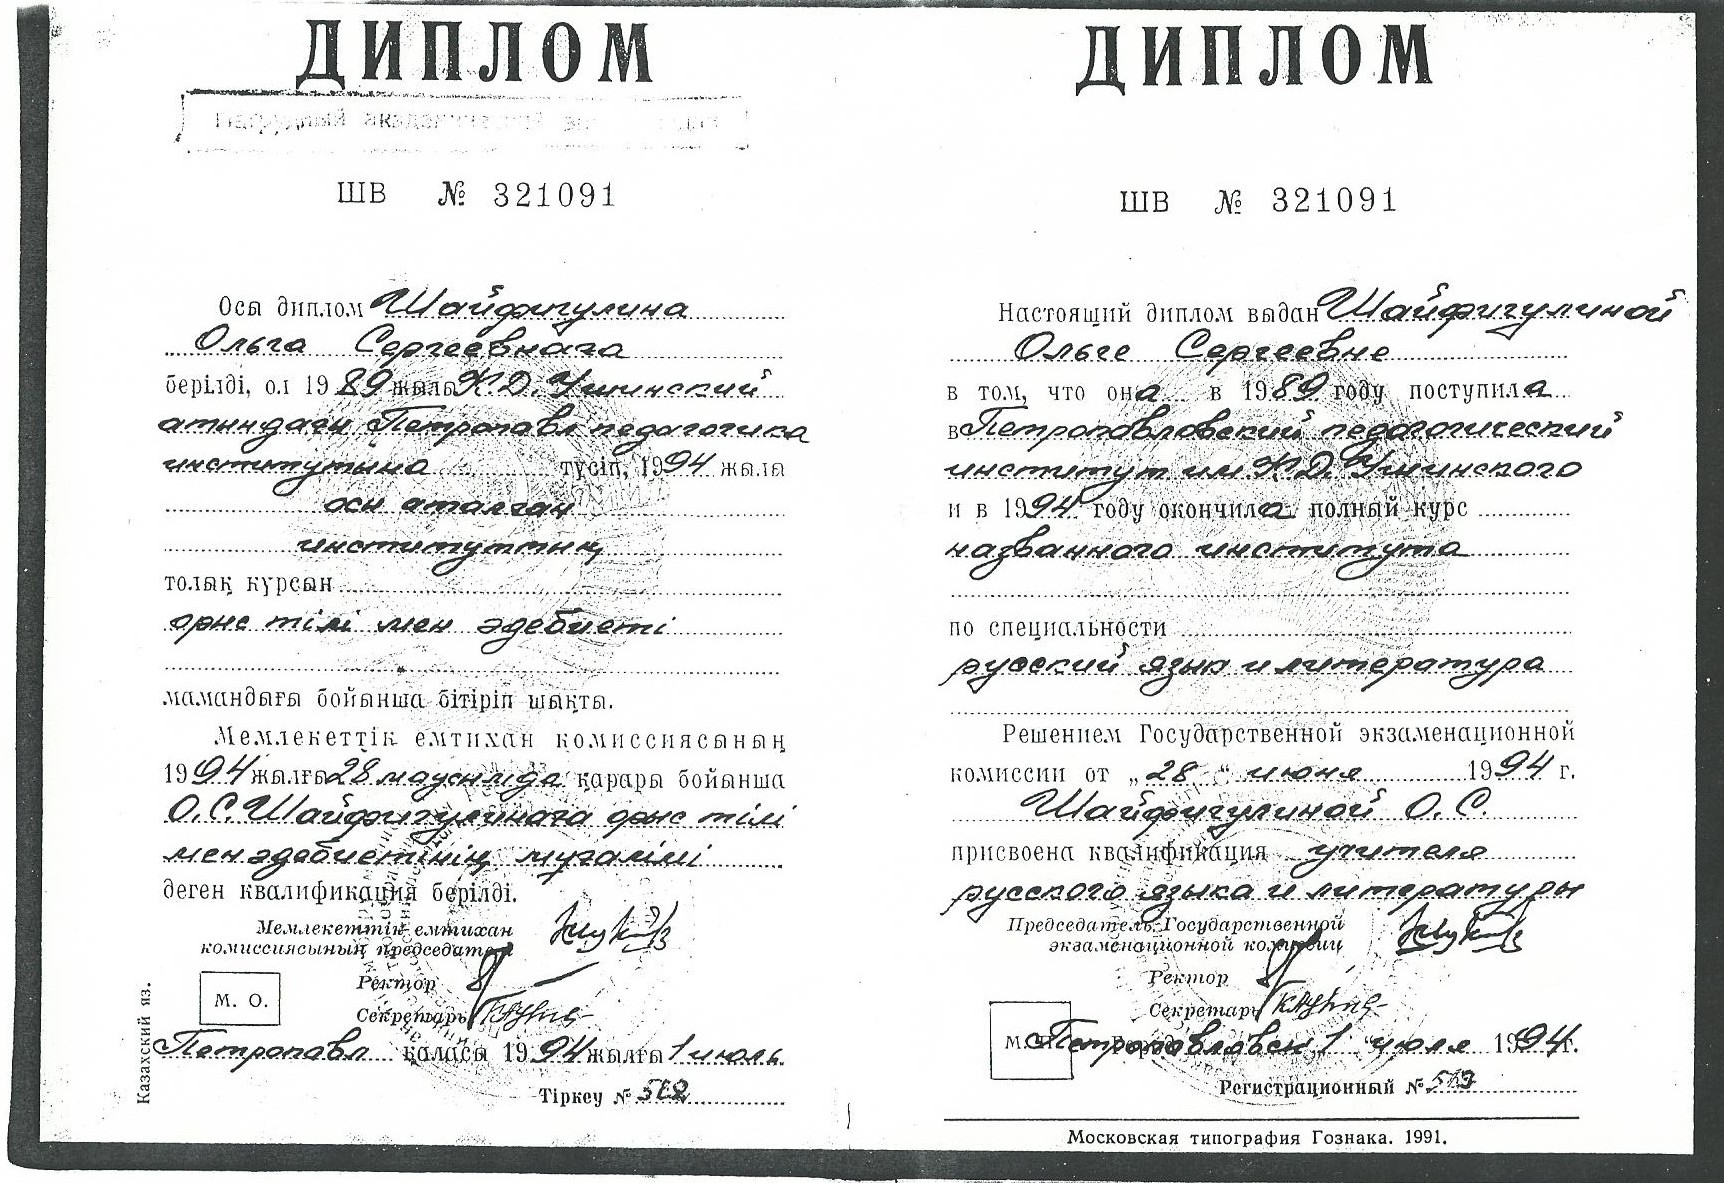 ДИПЛОМ
ШВ № 321091
Осы диплом Шайфигулина
Ольга Сергеевнаға
берілді, ол 1989 жылы К.Д. Ушинский
атындағы Петропавл педагогика
институтына түсіп, 1994 жылы
осы аталған
институттың
толық курсын
орыс тілі мен әдебиеті
мамандығы бойынша бітіріп шықты.
Мемлекеттік емтихан комиссиясының
1994 жылғы 28 маусымда қарары бойынша
О.С. Шайфигулинаға орыс тілі
мен әдебиетінің мұғалімі
деген квалификация берілді.
Мемлекеттік емтихан
комиссиясының председателі
Ректор
Секретарь
М. О.
Петропавл қаласы 1994 жылғы 1 июль
Тіркеу №
Казахский яз.
ДИПЛОМ
ШВ № 321091
Настоящий диплом выдан Шайфигулиной
Ольге Сергеевне
в том, что она в 1989 году поступила
в Петропавловский педагогический
институт им. К.Д. Ушинского
и в 1994 году окончила полный курс
названного института
по специальности
русский язык и литература
Решением Государственной экзаменационной
комиссии от „28“ июня 1994 г.
Шайфигулиной О. С.
присвоена квалификация учителя
русского языка и литературы
Председатель Государственной
экзаменационной комиссии
Ректор
Секретарь
Петропавловск 1 июля 1994 г.
Регистрационный №
Московская типография Гознака. 1991.